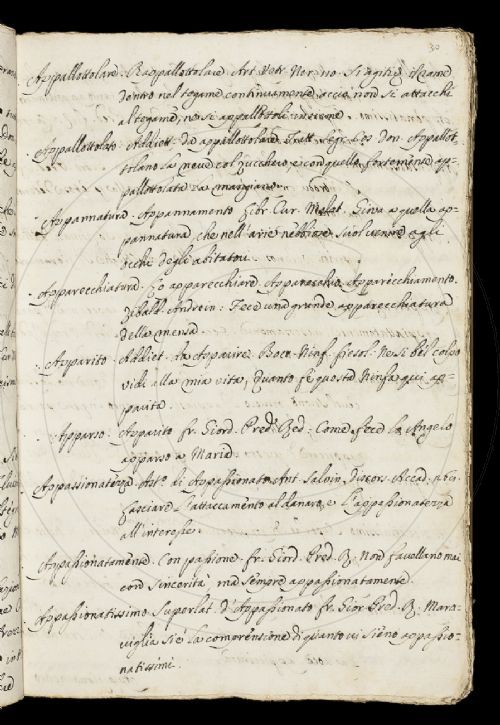 30
Appallottolare. Rappallottolare Art. Vetr. Ner. no. Si agiti il rame
dentro nel tegame continuamente acciò non si attacchi
al tegame, nè si appallottoli insieme.
Appallottolato. Addiett. da appallottolare. Tratt. segr. cos. don. Appallot-
tolano la neve col zucchero, e con quella fortemente ap-
pallottolata la mangiano.
Appannatura. Appannamento Libr. Cur. Malat. Giova a quella ap-
pannatura, che nell'arie nebbiose suol venire agli
occhi degli abitatori.
Apparecchiatura. Lo apparecchiare, Apparecchio, Apparecchiamento.
Zibald. Andrein: Fece una grande apparecchiatura
della mensa.
Apparito. Addiet. da Apparire. Bocc. Ninf. Fiesol. Nè sì bel colpo
vidi alla mia vita, Quanto fe questa Ninfa qui ap-
parita.
Apparso. Apparito fr. Giord. Pred. Red. Come fece lo Angelo
apparso a Maria.
Appassionatezza. Ast. di Appassionato. Ant. Salvin. Discors. Accad.
lasciare l'attaccamento al danaro, e l'appassionatezza
all'interesse.
Appassionatamente. Con passione. fr. Giord. Pred. R. Non favellano mai
con sincerità, ma sempre appassionatamente.
Appassionatissimo. Superlat. d'Appassionato fr. Gior. Pred. R. Mara-
viglia si è la comprensione di quanto vi sieno appassio-
natissimi.